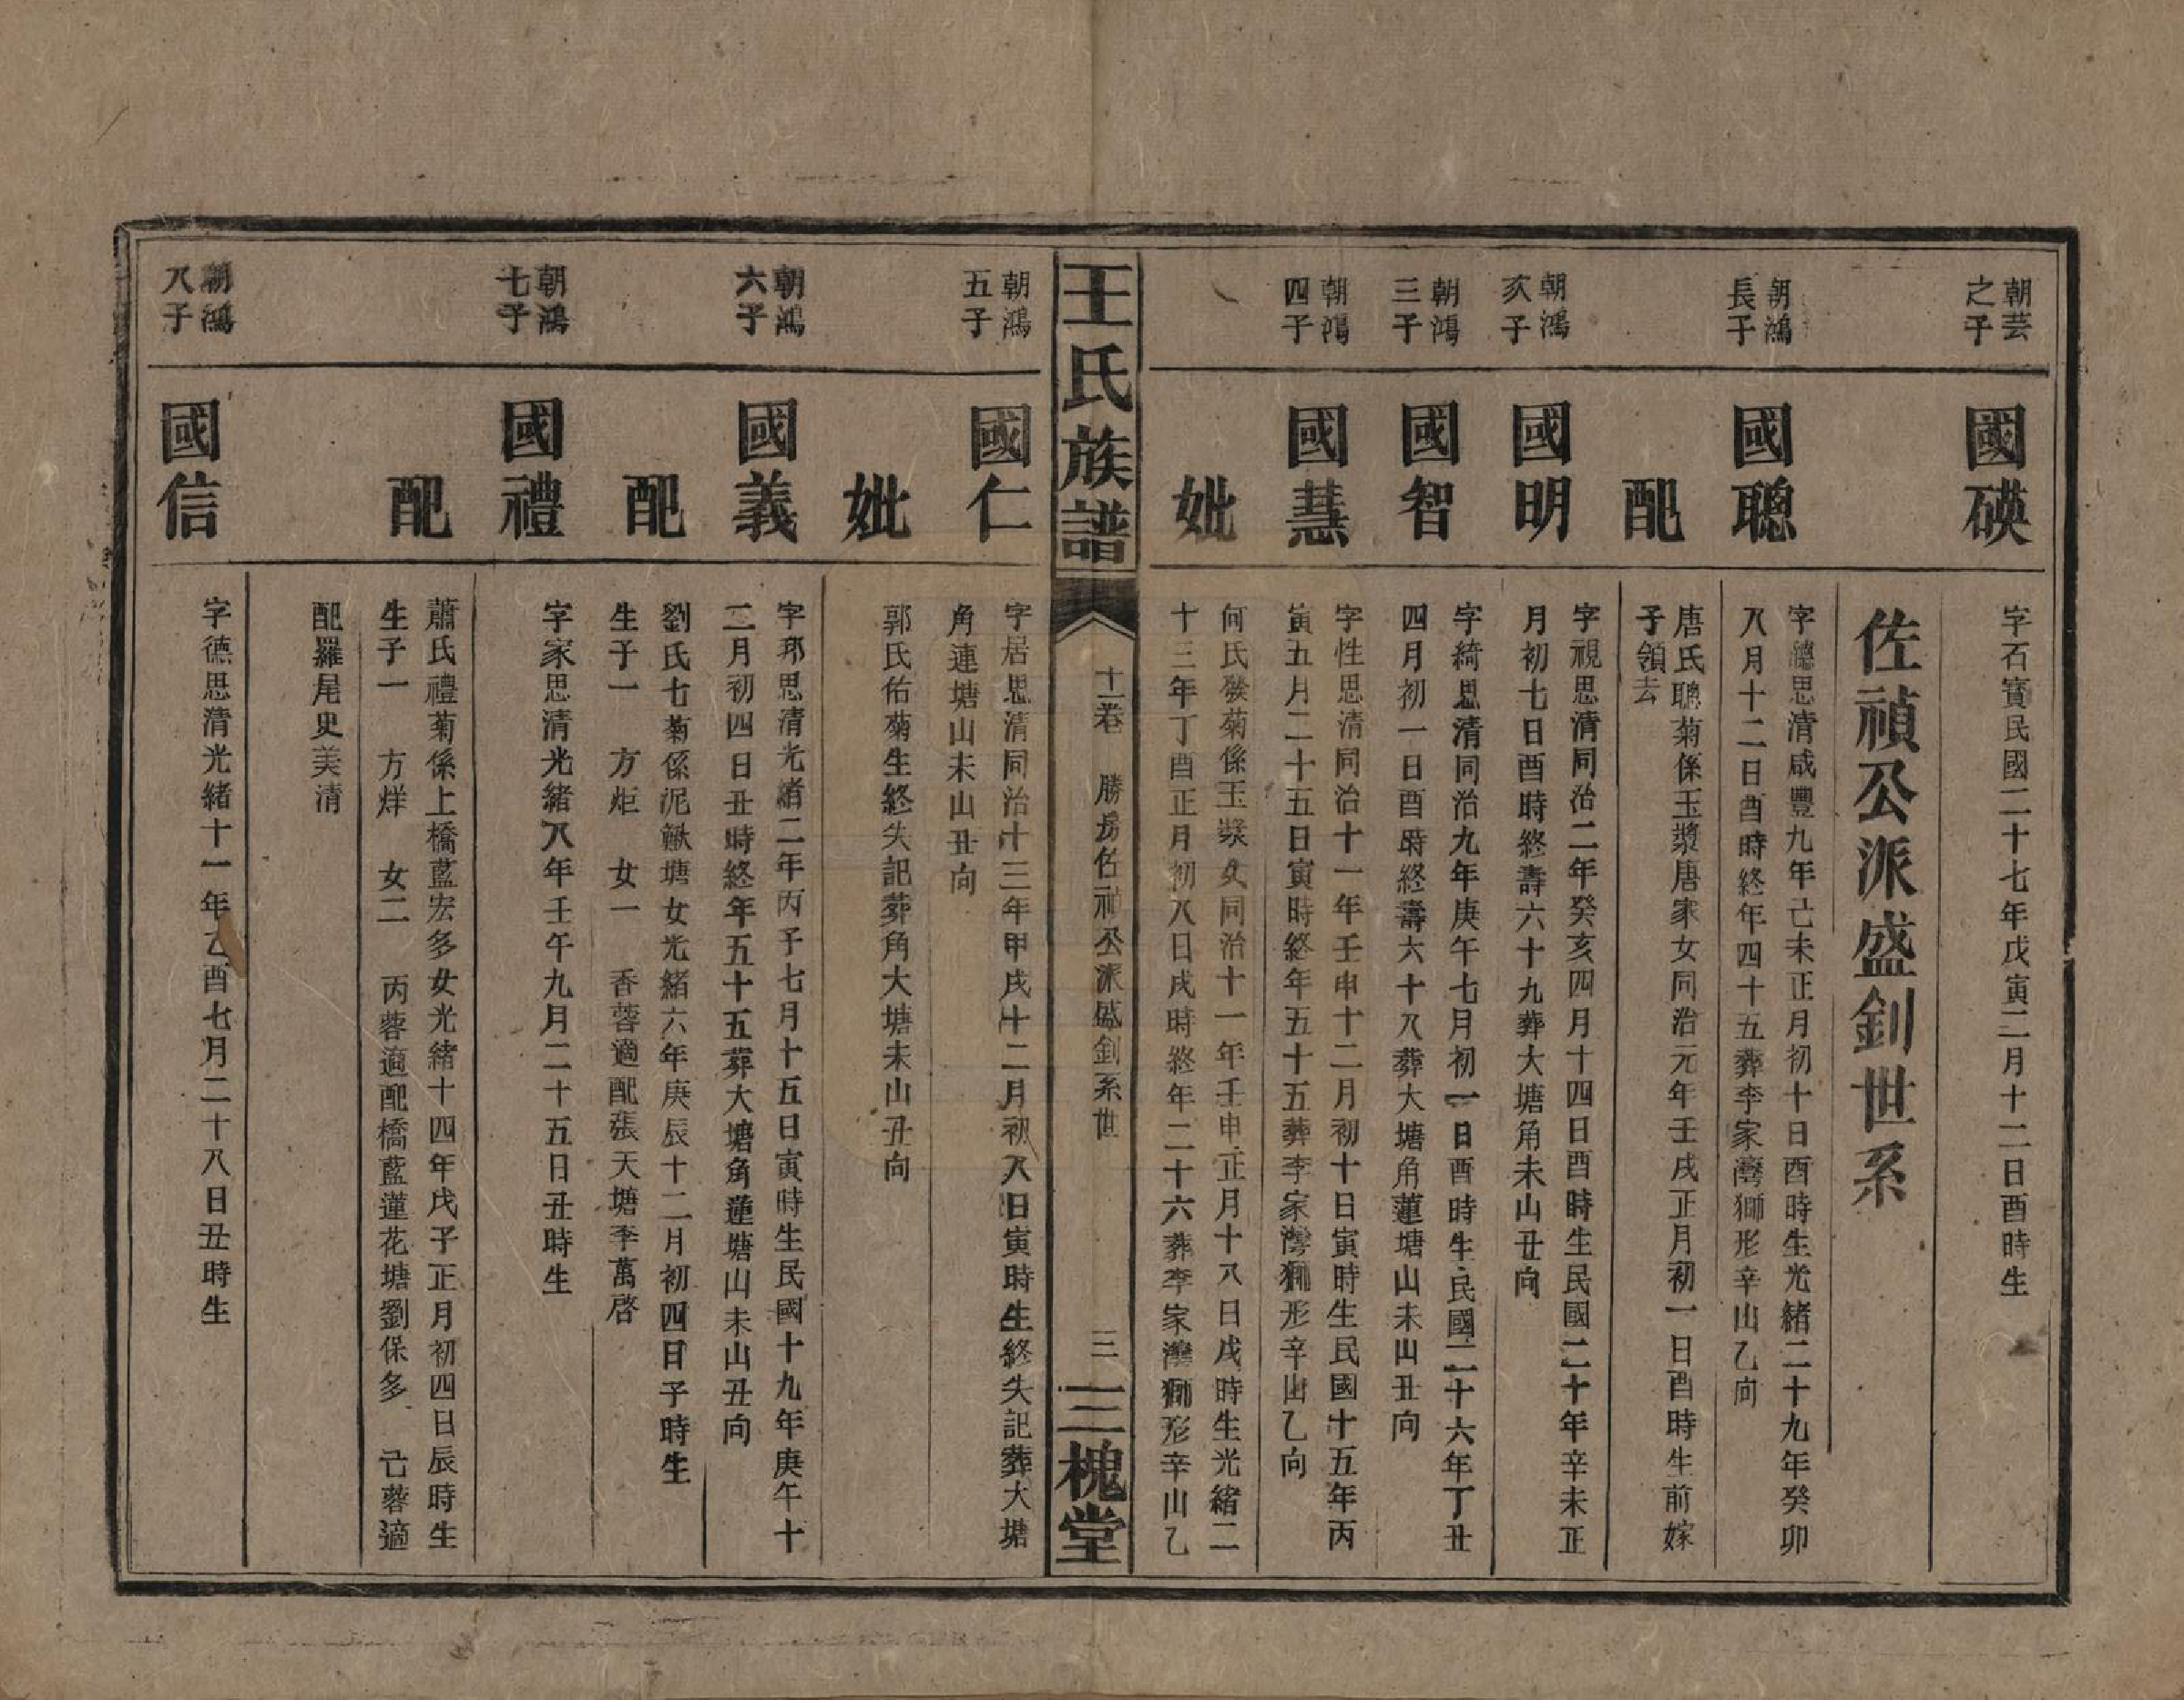 朝芸
之子
國碤
字石寶民國二十七年戊寅二月十二日酉時生
佐禎公派盛釗世系
朝鴻
長子
國聰
字聽思清咸豐九年己未正月初十日酉時生光緒二十九年癸卯
八月十二日酉時終年四十五葬李家灣獅形辛山乙向
配
唐氏聰菊係玉漿唐家女同治元年壬戌正月初一日酉時生前嫁
子領去
朝鴻
次子
國明
字視思清同治二年癸亥四月十四日酉時生民國二十年辛未正
月初七日酉時終壽六十九葬大塘角未山丑向
朝鴻
三子
國智
字綺思清同治九年庚午七月初一日酉時生民國二十六年丁丑
四月初一日酉時終壽六十八葬大塘角蓮塘山未山丑向
朝鴻
四子
國慧
字性思清同治十一年壬申十二月初十日寅時生民國十五年丙
寅五月二十五日寅時終年五十五葬李家灣獅形辛山乙向
妣
何氏發菊係玉漿女同治十一年壬申正月十八日戌時生光緒二
十三年丁酉正月初八日戌時終年二十六葬李家灣獅形辛山乙
王氏族譜
十一卷 勝房佐禎公派盛釗系世
三
三槐堂
朝鴻
五子
國仁
字居思清同治十三年甲戌十二月初八日寅時生終失記葬大塘
角連塘山未山丑向
妣
郭氏佑菊生終失記葬角大塘未山丑向
朝鴻
六子
國義
字邦思清光緒二年丙子七月十五日寅時生民國十九年庚午十
二月初四日丑時終年五十五葬大塘角蓮塘山未山丑向
配
劉氏七菊係泥鰍塘女光緒六年庚辰十二月初四日子時生
生子一 方炬 女一 香蓉適配張天塘李萬啓
朝鴻
七子
國禮
字家思清光緒八年壬午九月二十五日丑時生
配
蕭氏禮菊係上橋藍宏多女光緒十四年戊子正月初四日辰時生
生子一 方烊 女二 丙蓉適配橋藍蓮花塘劉保多 己蓉適
配羅尾史美清
朝鴻
八子
國信
字德思清光緒十一年乙酉七月二十八日丑時生